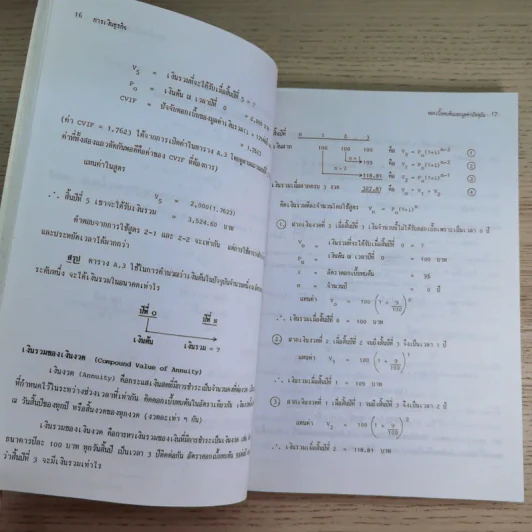 16 การเงินธุรกิจ
V5 = เงินรวมที่จะได้รับเมื่อสิ้นปีที่ 5 = ?
P0 = เงินต้น ณ เวลาปีที่ 0 = 2,000 บาท
CVIF = ปัจจัยดอกเบี้ยของมูลค่าเงินรวม
= 1.762)
(ค่า CVIF = 1.762) ได้จากการเปิดค่าในตาราง A.3
ค่าที่ทั้งสองแถวตัดกันพอดีคือค่าของ CVIF ที่ต้องการ)
แทนค่าในสูตร
V5 = 2,000(1.7623)
∴ สิ้นปีที่ 5 เขาจะได้รับเงินรวม = 3,524.60 บาท
คำตอบจากการใช้สูตร 2-1 และ 2-2 จะเท่ากัน
และประหยัดเวลาได้มากกว่า
สรุป ตาราง A.3 ใช้ในการคำนวณว่าเงินต้นในปัจจุบันจำนวนหนึ่ง
ระดับหนึ่ง จะได้เงินรวมในอนาคตเท่าไร
ปีที่ 0 ปีที่ n
เงินต้น เงินรวม = ?
เงินรวมของเงินงวด (Compound Value of Annuity)
เงินงวด (Annuity) คือกระแสเงินสดที่มีการชำระเป็นจำนวน
ที่กำหนดไว้ในระหว่างช่วงเวลาที่เท่ากัน คิดดอกเบี้ยทบต้นในอัตราเดียวกัน
ณ วันสิ้นปีของทุกปี หรือสิ้นงวดของทุกงวด (งวดละเท่า ๆ กัน)
เงินรวมของเงินงวด คือการหาเงินรวมของเงินที่มีการชำระเป็นเงินงวด เช่น
ธนาคารปีละ 100 บาท ทุกวันสิ้นปี เป็นเวลา 3 ปีติดต่อกัน อัตราดอกเบี้ยทบต้น
ว่าสิ้นปีที่ 3 จะมีเงินรวมเท่าไร
17
สิ้นปีที่ 0 1 2 3
เงินฝาก 100 100 100 คือ V0 = P0(1+i)n-3 1
n=1 109 คือ V1 = P0(1+i)n-2 2
n = 2 118.81 คือ V2 = 3
เงินรวมเมื่อฝากครบ 3 งวด 327.81 คือ 4
คิดเงินรวมแต่ละจำนวนโดยใช้สูตร Vn = P0(1+i)n
1. ฝากเงินงวดที่ 3 เมื่อสิ้นปีที่ 3 เงินจำนวนนี้ไม่ได้รับดอกเบี้ยเพราะเป็นเวลา 0 ปี
V0 = เงินรวมที่จะได้รับเมื่อสิ้นปีที่ 0 = ?
P0 = เงินต้น ณ เวลาปีที่ 0 = 100 บาท
i = อัตราดอกเบี้ยทบต้น = 9%
n = จำนวนปี = 0 ปี
แทนค่า V0 = 100 (1 + 9/100)0
∴ เงินรวมเมื่อสิ้นปีที่ 0 = 100 บาท
2. ฝากเงินงวดที่ 2 เมื่อสิ้นปีที่ 2 จนถึงสิ้นปีที่ 3 จึงเป็นเวลา 1 ปี
แทนค่า V1 = 100 (1 + 9/100)1
∴ เงินรวมเมื่อสิ้นปีที่ 1 = 109 บาท
3. ฝากเงินงวดที่ 1 เมื่อสิ้นปีที่ 1 จนถึงสิ้นปีที่ 3 จึงเป็นเวลา 2 ปี
แทนค่า V2 = 100 (1 + 9/100)2
∴ เงินรวมเมื่อสิ้นปีที่ 2 = 118.81 บาท